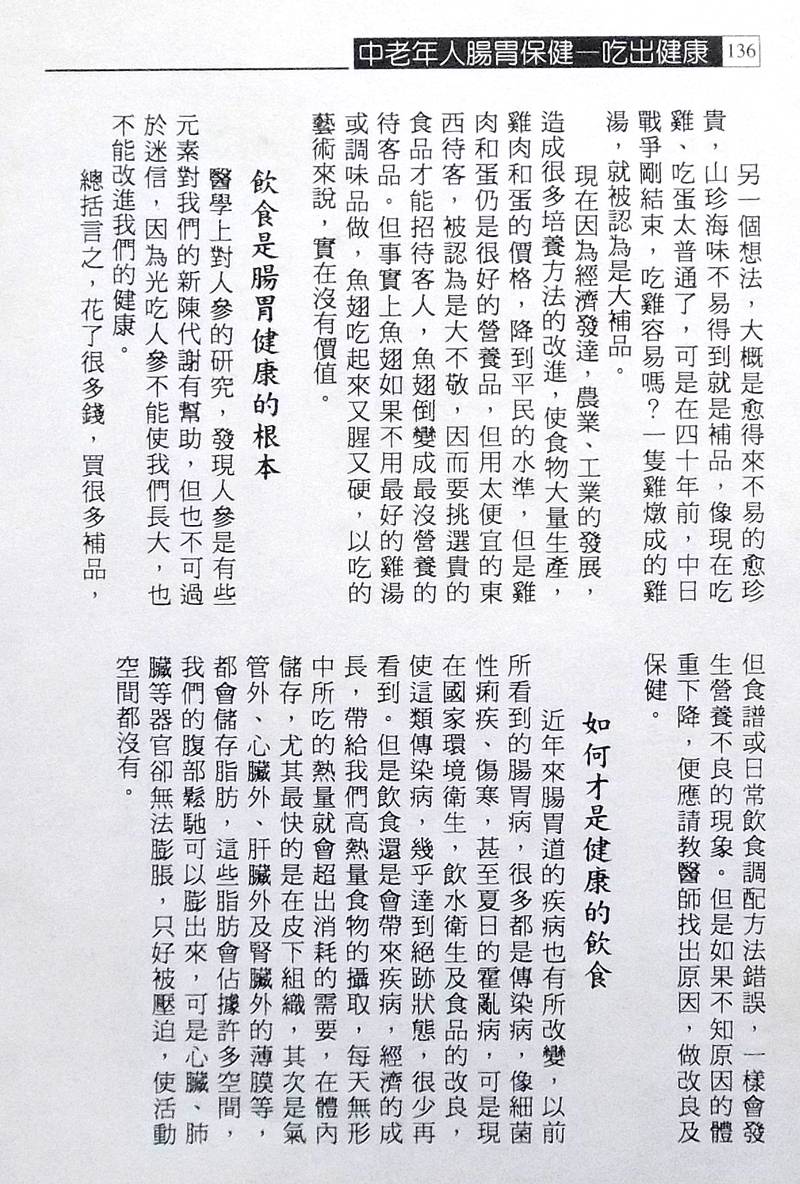 中老年人腸胃保健—吃出健康 136
另一個想法，大概是愈得來不易的愈珍
貴，山珍海味不易得到就是補品，像現在吃
雞、吃蛋太普通了，可是在四十年前，中日
戰爭剛結束，吃雞容易嗎？一隻雞燉成的雞
湯，就被認為是大補品。
現在因為經濟發達，農業、工業的發展，
造成很多培養方法的改進，使食物大量生產，
雞肉和蛋的價格，降到平民的水準，但是雞
肉和蛋仍是很好的營養品，但用太便宜的東
西待客，被認為是大不敬，因而要挑選貴的
食品才能招待客人，魚翅倒變成最沒營養的
待客品。但事實上魚翅如果不用最好的雞湯
或調味品做，魚翅吃起來又腥又硬，以吃的
藝術來說，實在沒有價值。
飲食是腸胃健康的根本
醫學上對人參的研究，發現人參是有些
元素對我們的新陳代謝有幫助，但也不可過
於迷信，因為光吃人參不能使我們長大，也
不能改進我們的健康。
總括言之，花了很多錢，買很多補品，
但食譜或日常飲食調配方法錯誤，一樣會發
生營養不良的現象。但是如果不知原因的體
重下降，便應請教醫師找出原因，做改良及
保健。
如何才是健康的飲食
近年來腸胃道的疾病也有所改變，以前
所看到的腸胃病，很多都是傳染病，像細菌
性痢疾、傷寒，甚至夏日的霍亂病，可是現
在國家環境衛生，飲水衛生及食品的改良，
使這類傳染病，幾乎達到絕跡狀態，很少再
看到。但是飲食還是會帶來疾病，經濟的成
長，帶給我們高熱量食物的攝取，每天無形
中所吃的熱量就會超出消耗的需要，在體內
儲存，尤其最快的是在皮下組織，其次是氣
管外、心臟外、肝臟外及腎臟外的薄膜等，
都會儲存脂肪，這些脂肪會佔據許多空間，
我們的腹部鬆馳可以膨出來，可是心臟、肺
臟等器官卻無法膨脹，只好被壓迫，使活動
空間都沒有。